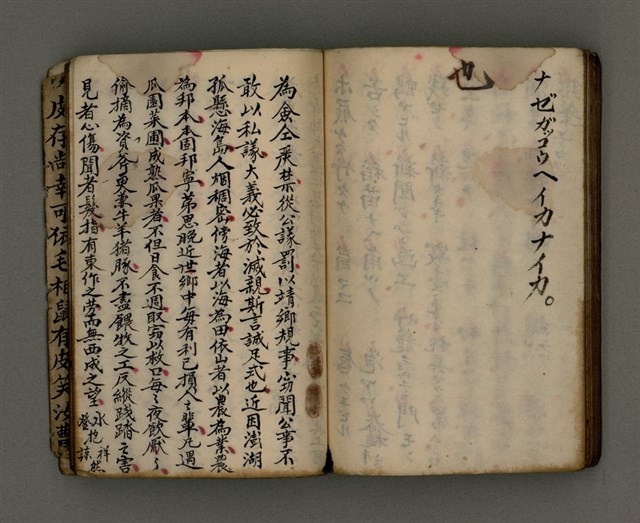 也
ナゼガッコウヘイカナイカ。
為僉仝嚴禁從公議罰以靖鄉規事窃聞公事不
敢以私議大義必致於滅親斯言誠足式也近因澎湖
孤懸海島人烟稠密傍海者以海為田依山者以農為業農
為邦本本固邦寧弟思晚近世鄉中每有利己損人之輩凡遇
瓜園菜圃成熟瓜果者不但日食不週取窃以救口每之夜飲厭
偷摘為資斧更妻牛羊猪豚不盡餵牧之工反縱踐踏之害
見者心傷聞者髮指有東作之勞而無西成之望
皮存尚幸可依毛相鼠有皮笑汝